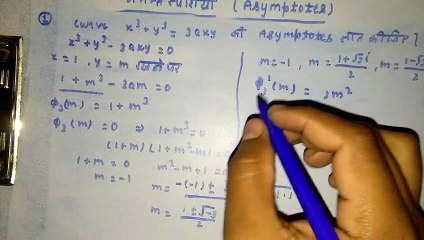 (Asymptotes)
① curve x³+y³ = 3axy की Asymptotes ज्ञात कीजिए।
x³+y³-3axy=0
x=1, y=m रखने पर
1+m³-3am=0
φ₃(m) = 1+m³
φ₃(m) = 0 ⇒ 1+m³=0
(1+m)(1+m²-m)
1+m=0 m²-m+1=0
m=-1
m= -(-1)±
m= 1±√-3 / 2
m=-1, m= 1+√3i / 2, m=
φ₃'(m) = 3m²